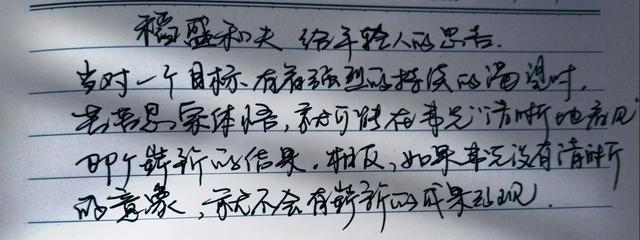 稻盛和夫 给年轻人的忠告.
当对一个目标、有着强烈的持续的渴望时,
去苦思冥体悟,就可能在事先“清晰地看见”
那个崭新的结果.相反,如果事先没有清晰
的意象,就不会有崭新的成果出现.